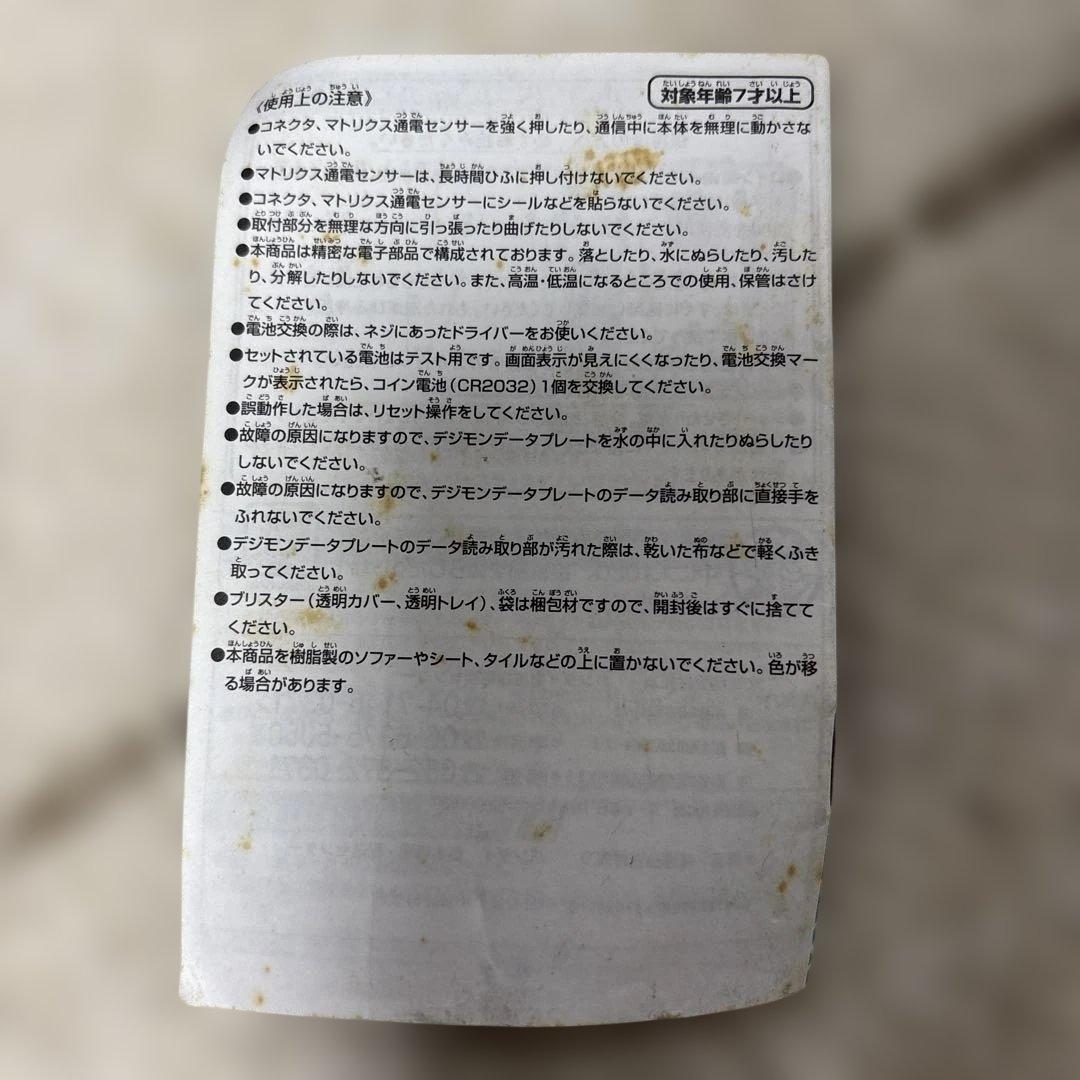 《使用上の注意》
対象年齢7才以上
●コネクタ、マトリクス通電センサーを強く押したり、通信中に本体を無理に動かさな
いでください。
●マトリクス通電センサーは、長時間ひふに押し付けないでください。
●コネクタ、マトリクス通電センサーにシールなどを貼らないでください。
●取付部分を無理な方向に引っ張ったり曲げたりしないでください。
●本商品は精密な電子部品で構成されております。落としたり、水にぬらしたり、汚した
り、分解したりしないでください。また、高温・低温になるところでの使用、保管はさけ
てください。
●電池交換の際は、ネジにあったドライバーをお使いください。
●セットされている電池はテスト用です。画面表示が見えにくくなったり、電池交換マー
クが表示されたら、コイン電池(CR2032)1個を交換してください。
●誤動作した場合は、リセット操作をしてください。
●故障の原因になりますので、デジモンデータプレートを水の中に入れたりぬらしたり
しないでください。
●故障の原因になりますので、デジモンデータプレートのデータ読み取り部に直接手を
ふれないでください。
●デジモンデータプレートのデータ読み取り部が汚れた際は、乾いた布などで軽くふき
取ってください。
●ブリスター(透明カバー、透明トレイ)、袋は梱包材ですので、開封後はすぐに捨てて
ください。
●本商品を樹脂製のソファーやシート、タイルなどの上に置かないでください。色が移
る場合があります。